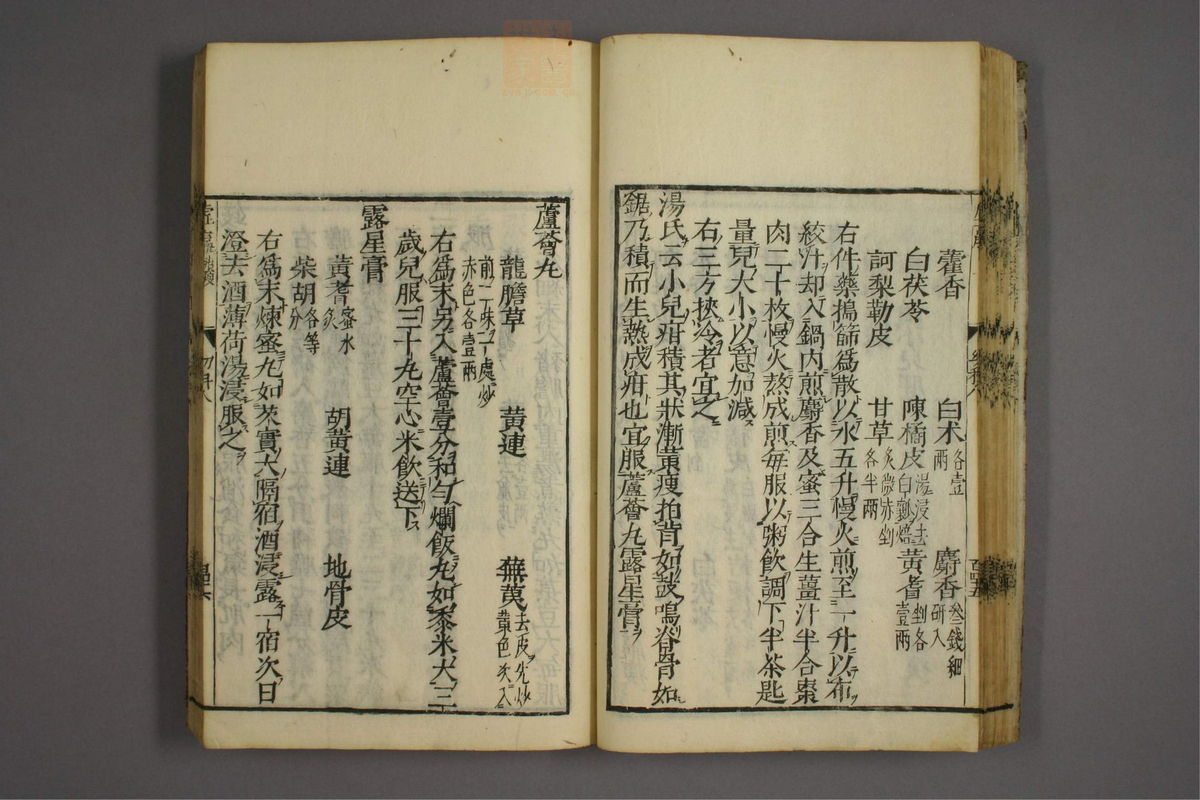 藿香　白朮各壹兩　麝香叁錢細研入
白茯苓　陳橘皮湯浸去白瓤焙　黃耆剉各壹兩
訶梨勒皮　甘草炙微赤剉各半兩
右件藥搗篩爲散以水五升慢火煎至一升以布
絞汁却入鍋內煎麝香及蜜三合生薑汁半合棗
肉二十枚慢火熬成煎每服以粥飲調下半茶匙
量兒大小以意加減
右三方挾冷者宜之
湯氏云小兒疳積其狀漸黃瘦拍背如鼓鳴脊骨如
鋸乃積而生熱成疳也宜服蘆薈丸露星膏
蘆薈丸
龍膽草　黃連　蕪荑去皮先炒黃色次入
前二味一處炒赤色各壹兩
右爲末另入蘆薈壹分和勻爛飯丸如黍米大三
歲兒服三十丸空心米飲送下
露星膏
黃耆蜜水炙　胡黃連　地骨皮
柴胡各等分
右爲末煉蜜丸如芡實大隔宿酒浸露一宿次日
澄去酒薄荷湯浸服之